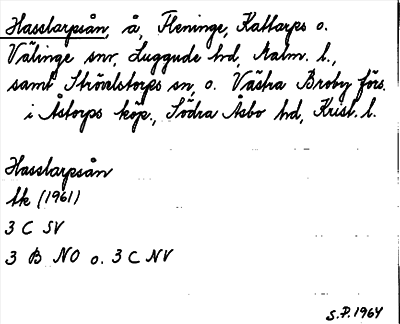 Hasslarpsån, å, Fleninge, Kattarps o.
Välinge snr, Luggude hd, Malm. l.,
samt Strövelstorps sn, o. Västra Broby förs.
i Åstorps köp., Södra Åsbo hd, Krist. l.
Hasslarpsån
tk (1961)
3 C SV
3 B NO o. 3 C NV
S.P. 1964